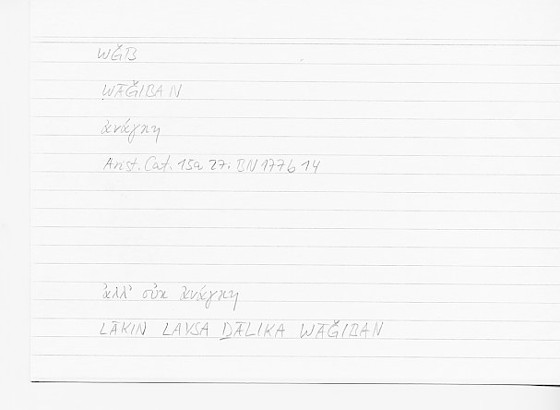 WǦB
WĀǦIBAN
ἀνάγκη
Arist. Cat. 15a 27. BN 177b 14
ἀλλ' οὐκ ἀνάγκη
LĀKIN LAYSA ḎĀLIKA WĀǦIBAN